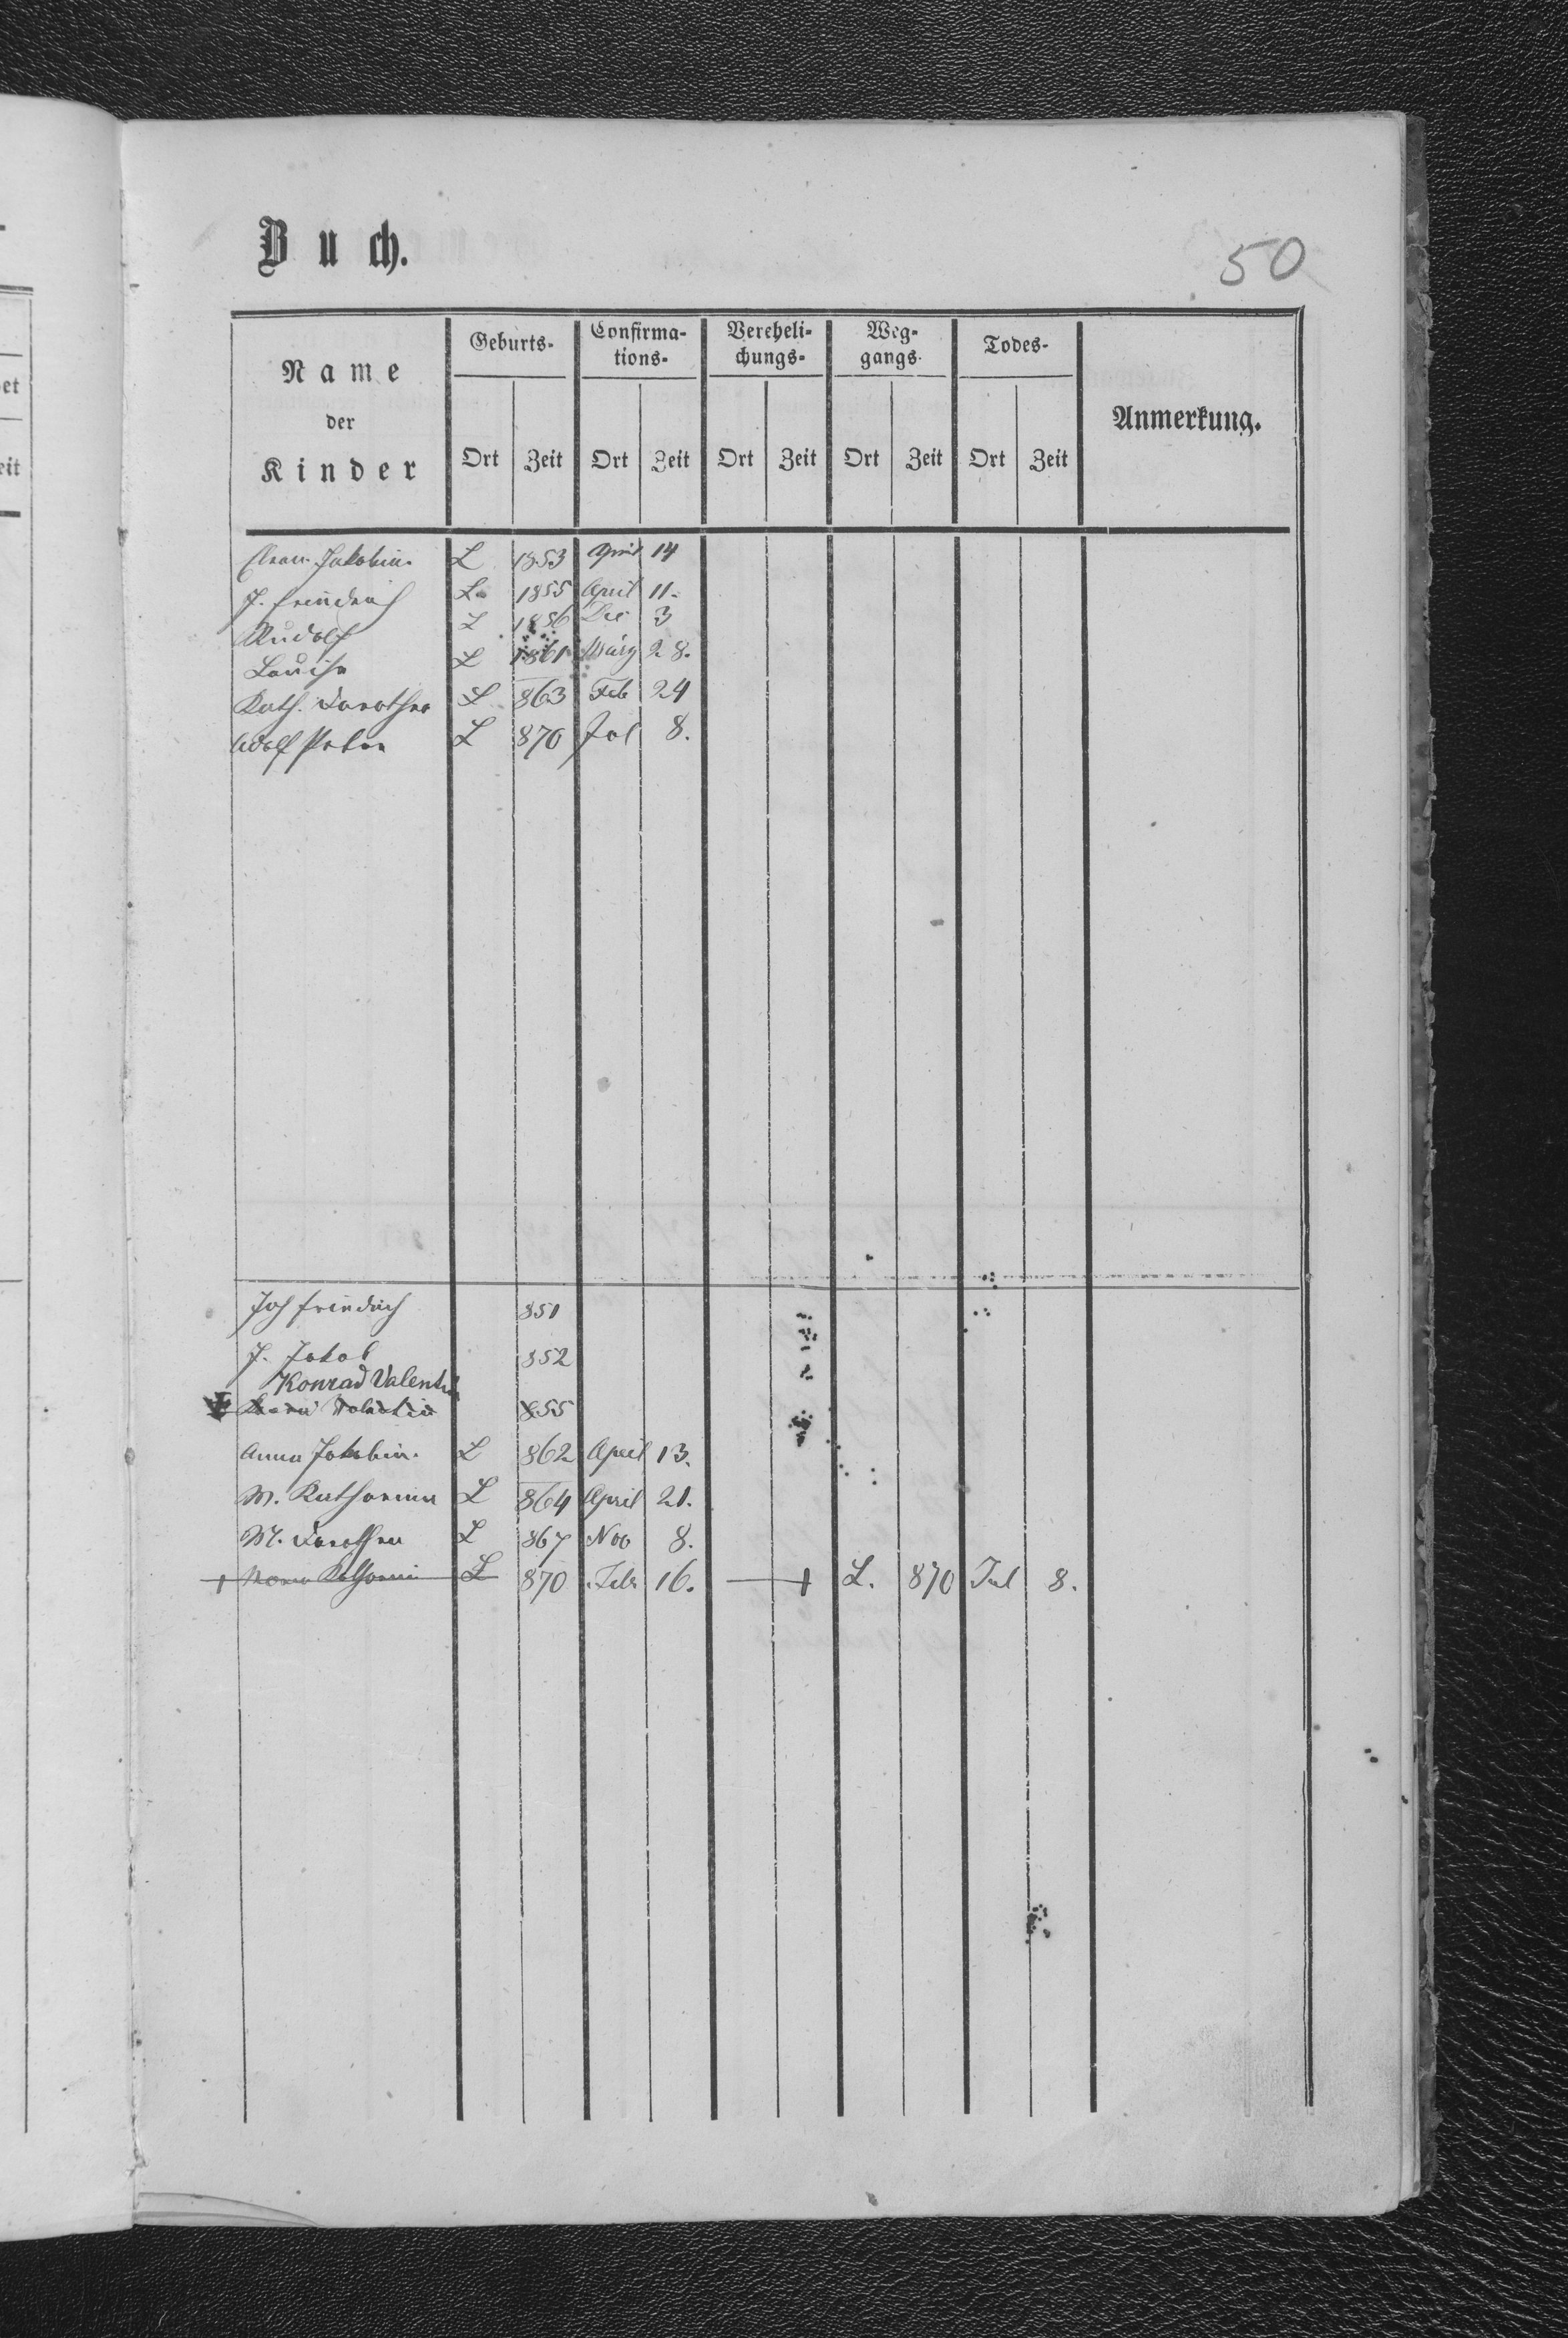 Buch.
50
Name der Kinder
Geburts-
Confirma-
tions-
Vereheli-
chungs-
Weg-
gangs
Todes-
Anmerkung.
Ort Zeit Ort Zeit Ort Zeit Ort Zeit Ort Zeit
Jakobin. L 1853 April 14
J. Friedrich L. 1855 April 11.
Rudolf L 1856 Dec 3
Louise L 1861 März 28.
Kath. Dorothea L 863 Feb 24
Adolf Peter L 870 Jul 8.
Joh Friedrich 851
J. Jakob 852
Konrad Valentin
Valentin 855
Anna Jakobin. L 862 April 13.
M. Katharina L 864 April 21.
M. Dorothea L 867 Nov 8.
+ Maria Katharin L 870 Feb 16. + L. 870 Jul 8.
et
eit